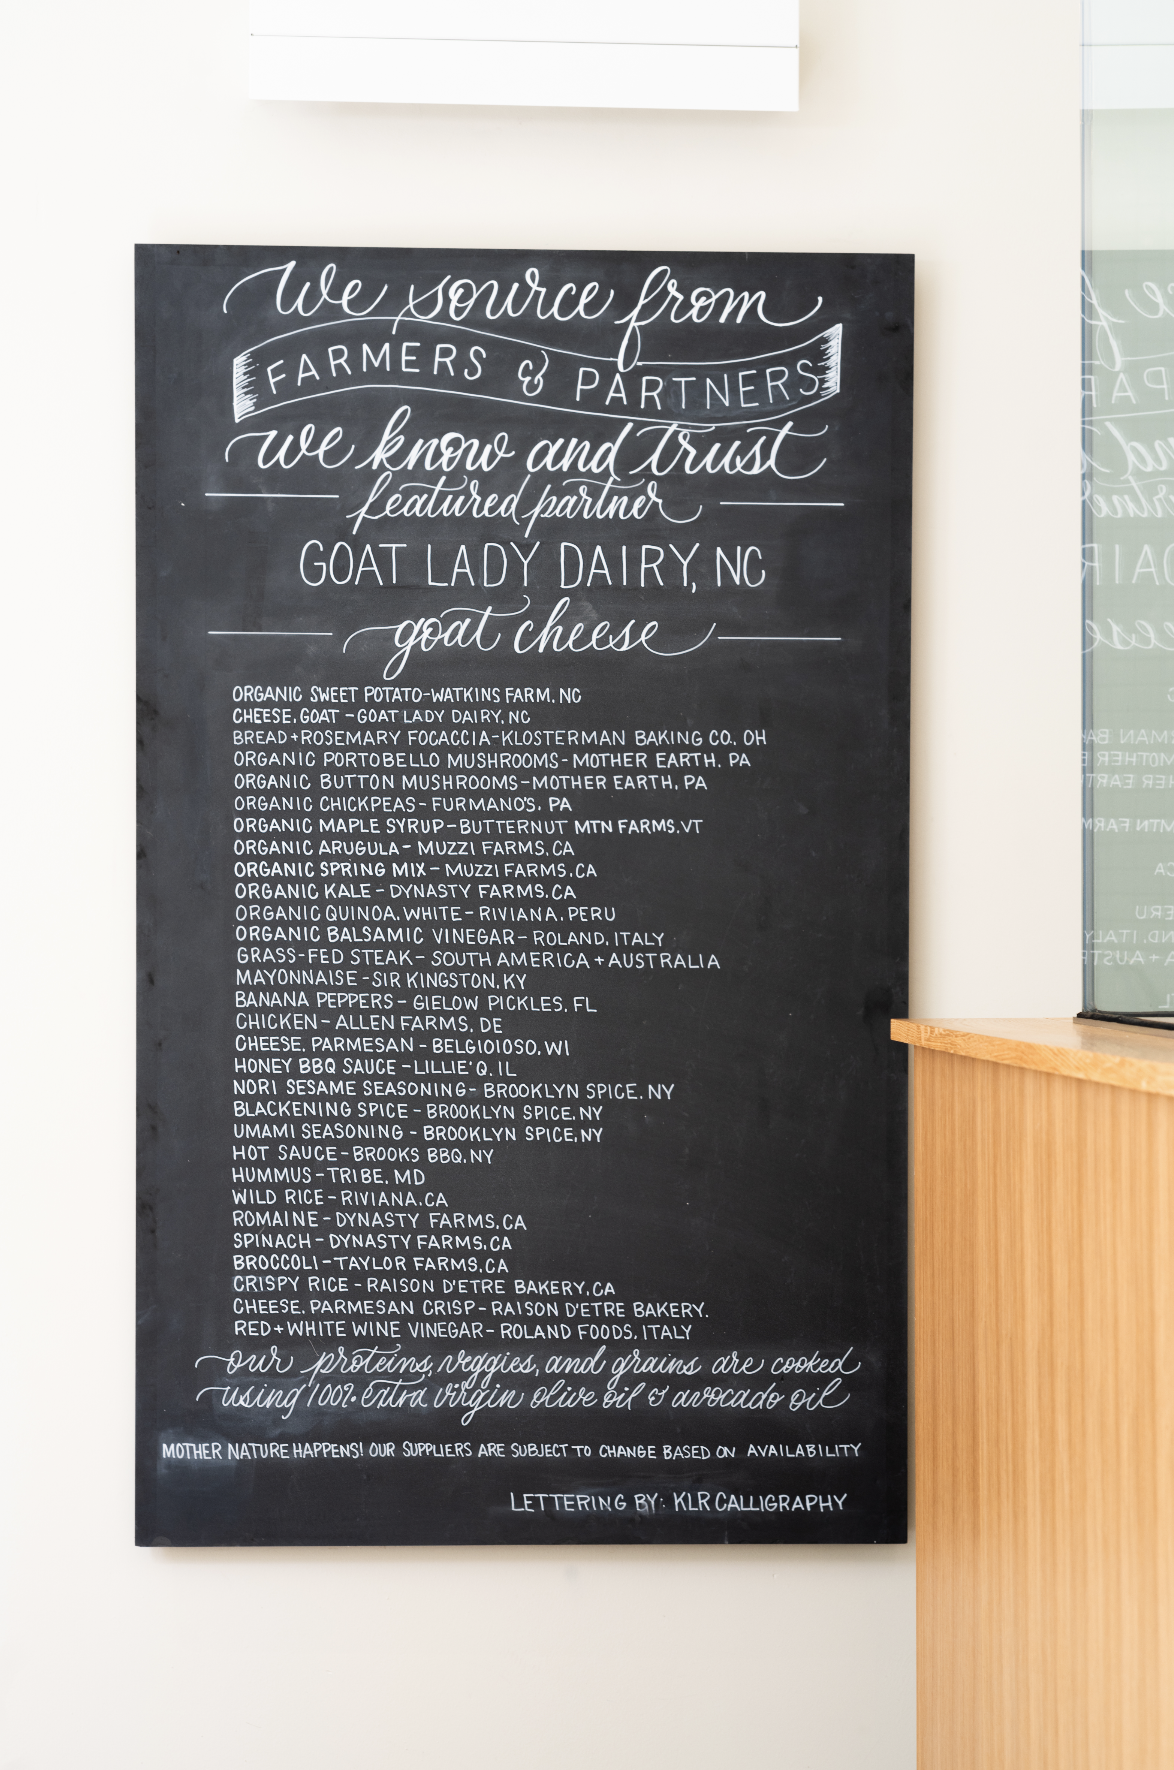 we source from
FARMERS & PARTNERS
we know and trust
featured partner
GOAT LADY DAIRY, NC
goat cheese
ORGANIC SWEET POTATO-WATKINS FARM, NC
CHEESE, GOAT - GOAT LADY DAIRY, NC
BREAD + ROSEMARY FOCACCIA - KLOSTERMAN BAKING CO., OH
ORGANIC PORTOBELLO MUSHROOMS - MOTHER EARTH, PA
ORGANIC BUTTON MUSHROOMS - MOTHER EARTH, PA
ORGANIC CHICKPEAS - FURMANO'S, PA
ORGANIC MAPLE SYRUP - BUTTERNUT MTN FARMS, VT
ORGANIC ARUGULA - MUZZI FARMS, CA
ORGANIC SPRING MIX - MUZZI FARMS, CA
ORGANIC KALE - DYNASTY FARMS, CA
ORGANIC QUINOA, WHITE - RIVIANA, PERU
ORGANIC BALSAMIC VINEGAR - ROLAND, ITALY
GRASS-FED STEAK - SOUTH AMERICA + AUSTRALIA
MAYONNAISE - SIR KINGSTON, KY
BANANA PEPPERS - GIELOW PICKLES, FL
CHICKEN - ALLEN FARMS, DE
CHEESE, PARMESAN - BELGIOIOSO, WI
HONEY BBQ SAUCE - LILLIE'Q, IL
NORI SESAME SEASONING - BROOKLYN SPICE, NY
BLACKENING SPICE - BROOKLYN SPICE, NY
UMAMI SEASONING - BROOKLYN SPICE, NY
HOT SAUCE - BROOKS BBQ, NY
HUMMUS - TRIBE, MD
WILD RICE - RIVIANA, CA
ROMAINE - DYNASTY FARMS, CA
SPINACH - DYNASTY FARMS, CA
BROCCOLI - TAYLOR FARMS, CA
CRISPY RICE - RAISON D'ETRE BAKERY, CA
CHEESE, PARMESAN CRISP - RAISON D'ETRE BAKERY.
RED + WHITE WINE VINEGAR - ROLAND FOODS, ITALY
our proteins, veggies, and grains are cooked
using 100% extra virgin olive oil & avocado oil
MOTHER NATURE HAPPENS! OUR SUPPLIERS ARE SUBJECT TO CHANGE BASED ON AVAILABILITY
LETTERING BY: KLR CALLIGRAPHY